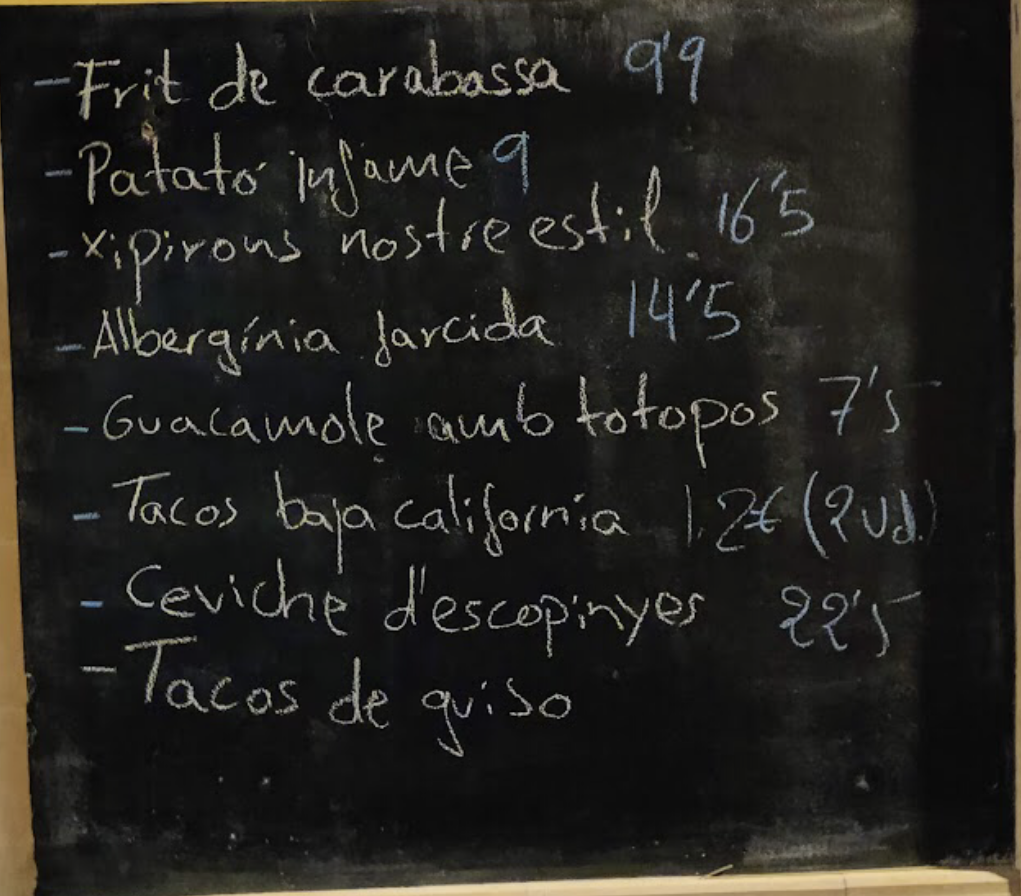 - Frit de carabassa 9'9
- Patató infame 9
- Xipirons nostre estil. 16'5
- Albergínia farcida 14'5
- Guacamole amb totopos 7'5
- Tacos baja california 12€ (2 Ud.)
- Ceviche d'escopinyes 22'5
- Tacos de guiso